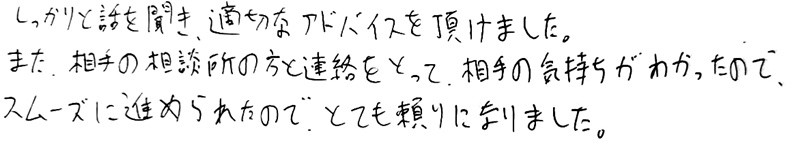 しっかりと話を聞き、適切なアドバイスを頂けました。
また、相手の相談所の方と連絡をとって、相手の気持ちがわかったので、
スムーズに進められたので、とても頼りになりました。